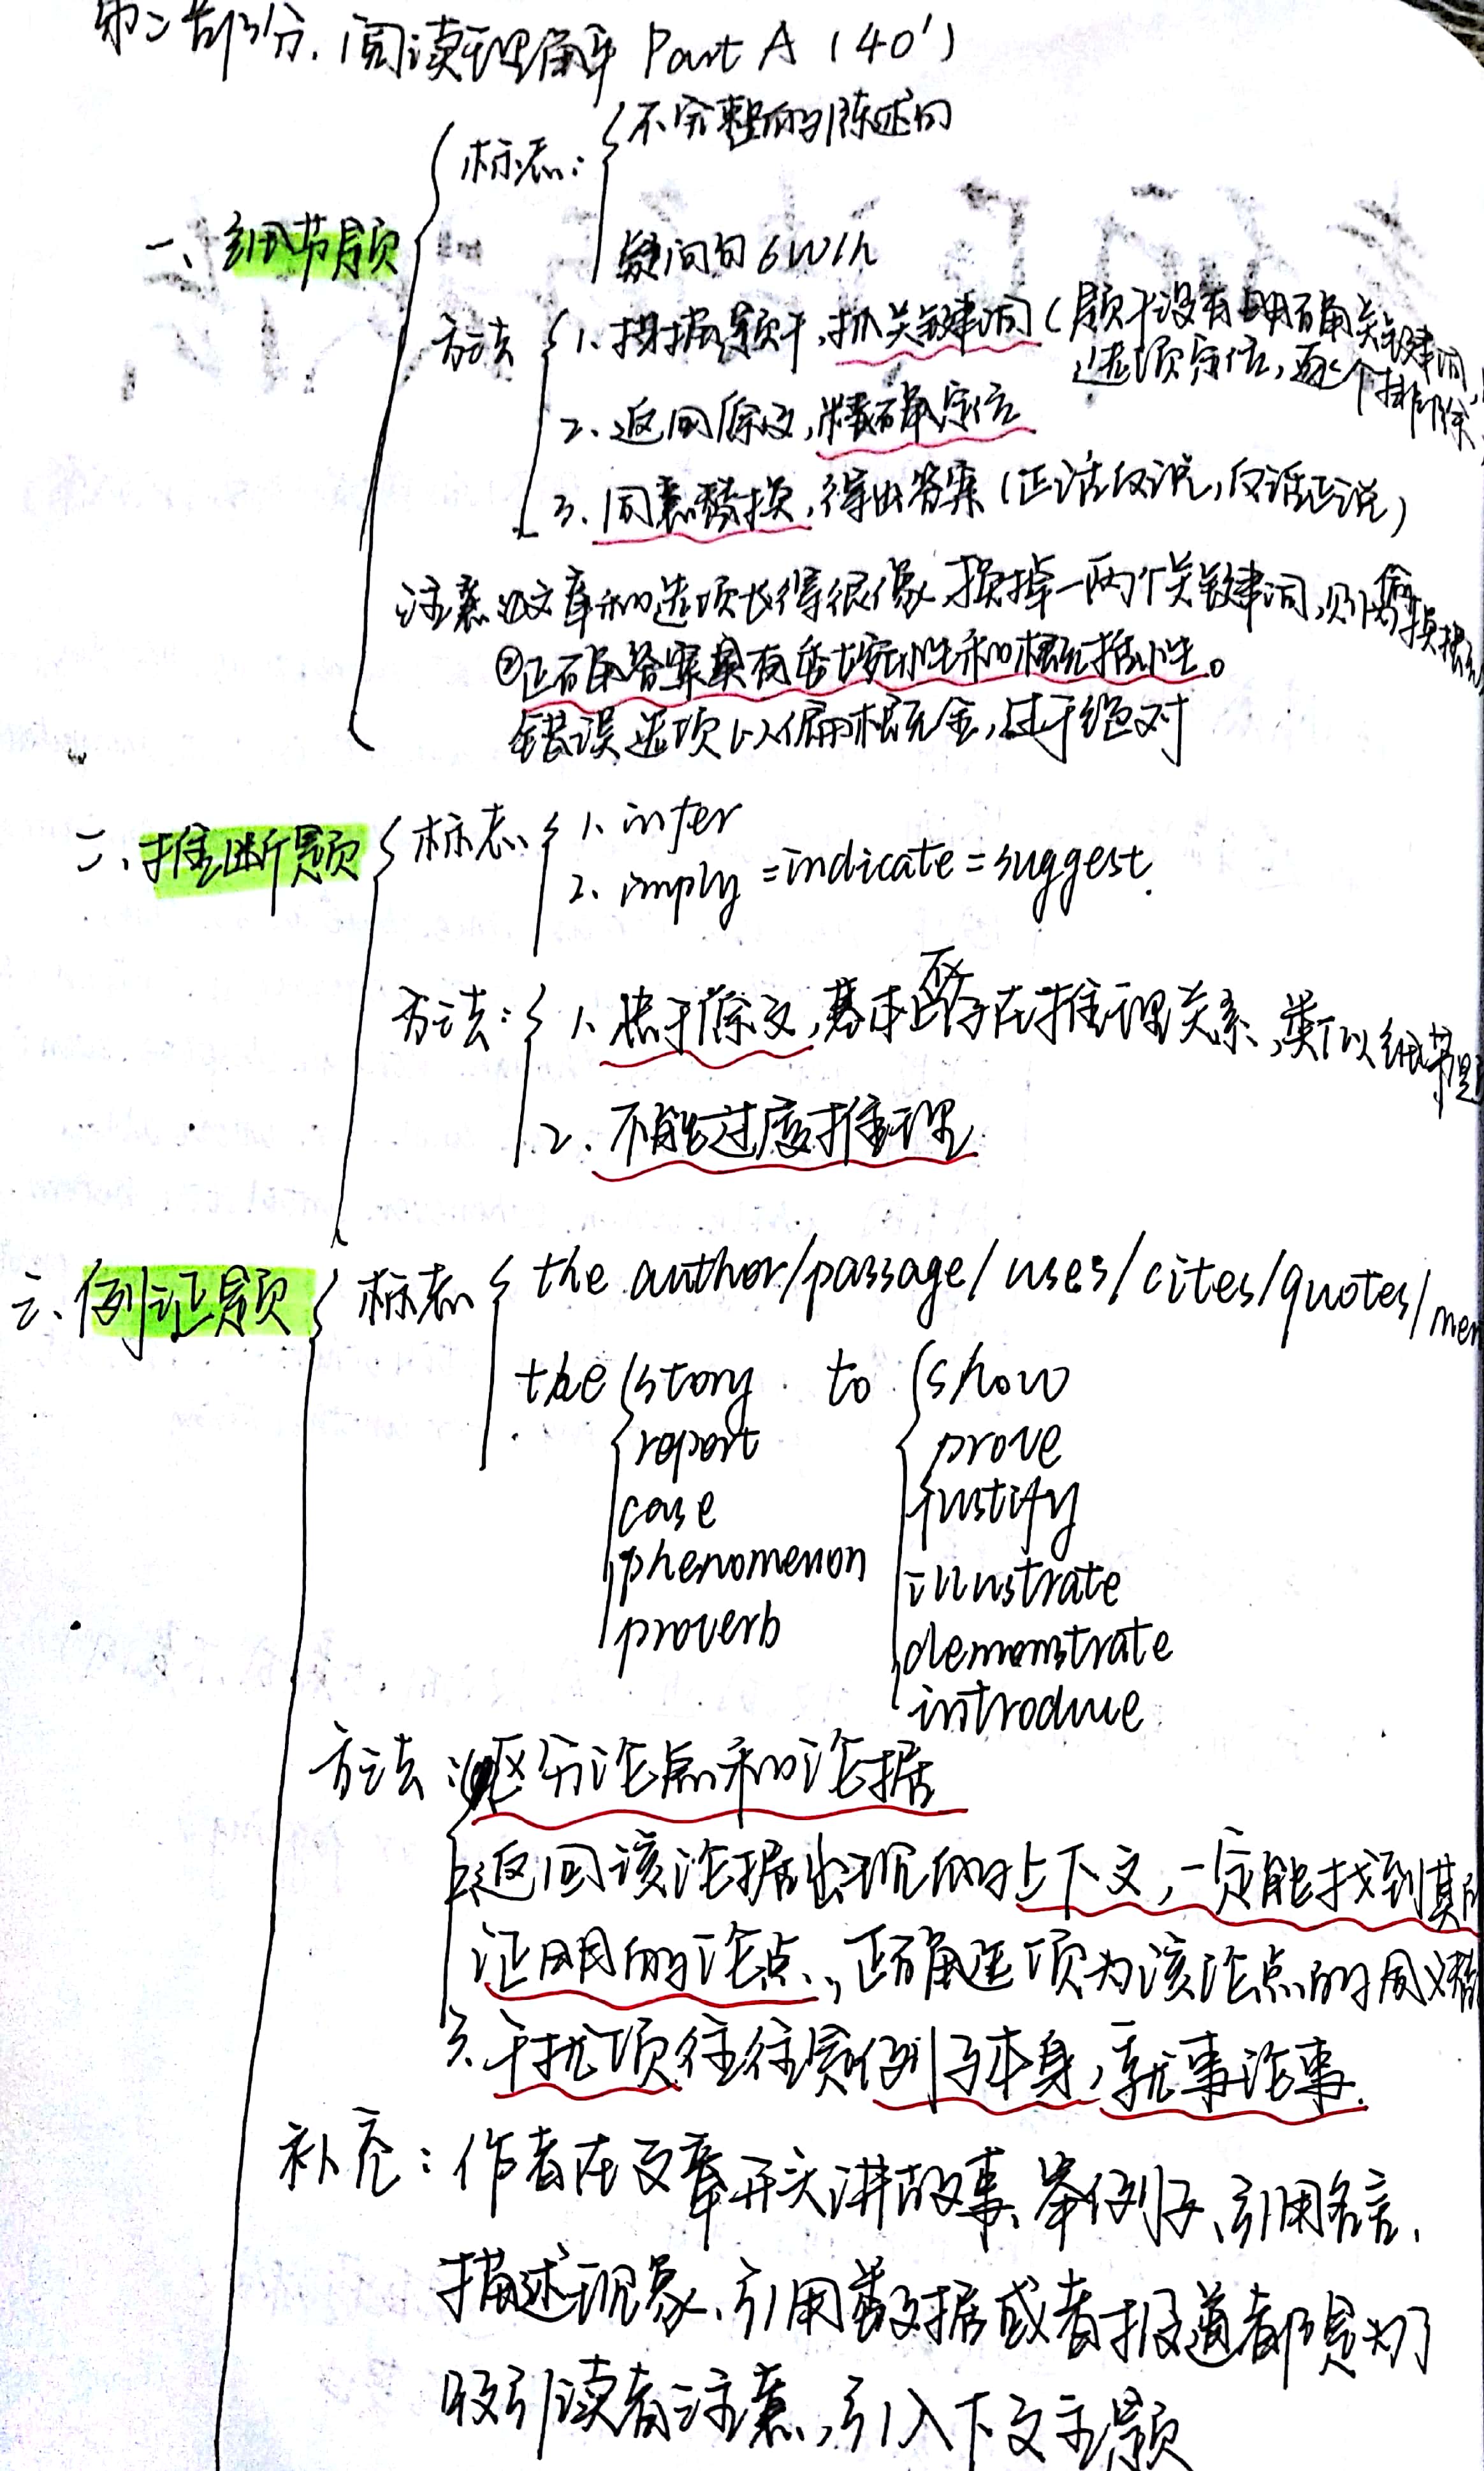 第二部分. 阅读理解 Part A (40')
标志: 不完整的陈述句
一、细节题
疑问句 6W1h
方法 1、根据题干, 抓关键词 (题干没有明确关键词,
选项定位, 逐个排除
2、返回原文, 精确定位
3、同意替换, 得出答案 (正话反说, 反话正说)
注意 ①文章和选项长得很像, 换掉一两个关键词, 则偷换概
②正确答案具有委婉性和概括性。
错误选项以偏概全, 过于绝对
二、推断题 标志 1、infer
2、imply = indicate = suggest.
方法: 1、忠于原文, 基本不存在推理关系, 类似细节题
2、不能过度推理
三、例证题 标志 the author/passage/uses/cites/quotes/men
the story to show
report prove
case justify
phenomenon illustrate
proverb demonstrate
introduce
方法: 区分论点和论据
2. 返回该论据出现的上下文, 一定能找到其所
证明的论点, 正确选项为该论点的同义替
3、干扰项往往是例子本身, 就事论事.
补充: 作者在文章开头讲故事、举例子、引用名言、
描述现象、引用数据或者报道都是为了
吸引读者注意, 引入下文主题